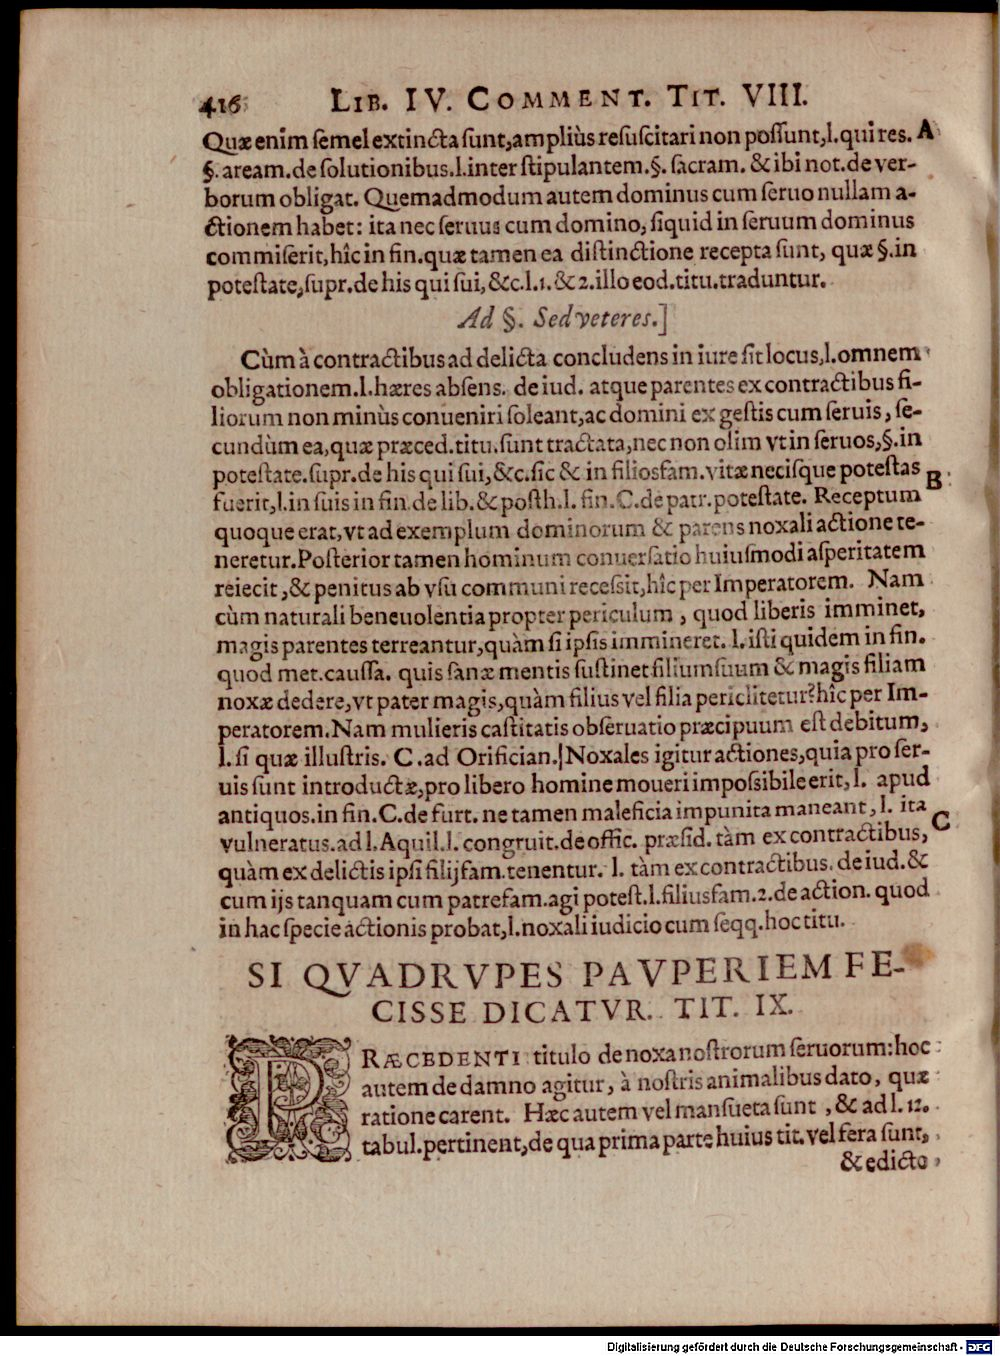 416 LIB. IV. COMMENT. TIT. VIII.
Quæ enim semel extincta sunt, ampliùs resuscitari non possunt, l. qui res. A
§. aream. de solutionibus. l. inter stipulantem. §. sacram. & ibi not. de ver-
borum obligat. Quemadmodum autem dominus cum seruo nullam a-
ctionem habet: ita nec seruus cum domino, siquid in seruum dominus
commiserit, hîc in fin. quæ tamen ea distinctione recepta sunt, quæ §. in
potestate, supr. de his qui sui, &c. l. 1. & 2. illo eod. titu. traduntur.
Ad §. Sed veteres.]
Cùm à contractibus ad delicta concludens in iure sit locus, l. omnem
obligationem. l. hæres absens. de iud. atque parentes ex contractibus fi-
liorum non minùs conueniri soleant, ac domini ex gestis cum seruis, se-
cundùm ea, quæ præced. titu. sunt tractata, nec non olim vt in seruos, §. in
potestate. supr. de his qui sui, &c. sic & in filiosfam. vitæ necisque potestas
fuerit, l. in suis in fin. de lib. & posth. l. fin. C. de patr. potestate. Receptum B
quoque erat, vt ad exemplum dominorum & parens noxali actione te-
neretur. Posterior tamen hominum conuersatio huiusmodi asperitatem
reiecit, & penitus ab vsu communi recessit, hîc per Imperatorem. Nam
cùm naturali beneuolentia propter periculum, quod liberis imminet,
magis parentes terreantur, quàm si ipsis immineret. l. isti quidem in fin.
quod met. caussa. quis sanæ mentis sustinet filium suum & magis filiam
noxæ dedere, vt pater magis, quàm filius vel filia periclitetur? hîc per Im-
peratorem. Nam mulieris castitatis obseruatio præcipuum est debitum,
l. si quæ illustris. C. ad Orifician.] Noxales igitur actiones, quia pro ser-
uis sunt introductæ, pro libero homine moueri impossibile erit, l. apud
antiquos. in fin. C. de furt. ne tamen maleficia impunita maneant, l. ita
vulneratus. ad l. Aquil. l. congruit. de offic. præsid. tàm ex contractibus, C
quàm ex delictis ipsi filijfam. tenentur. l. tàm ex contractibus. de iud. &
cum ijs tanquam cum patrefam. agi potest. l. filiusfam. 2. de action. quod
in hac specie actionis probat, l. noxali iudicio cum seqq. hoc titu.
SI QVADRVPES PAVPERIEM FE-
CISSE DICATVR. TIT. IX.
PRÆCEDENTI titulo de noxa nostrorum seruorum: hoc
autem de damno agitur, à nostris animalibus dato, quæ
ratione carent. Hæc autem vel mansueta sunt, & ad l. 12.
tabul. pertinent, de qua prima parte huius tit. vel fera sunt,
& edicto
Digitalisierung gefördert durch die Deutsche Forschungsgemeinschaft - DFG